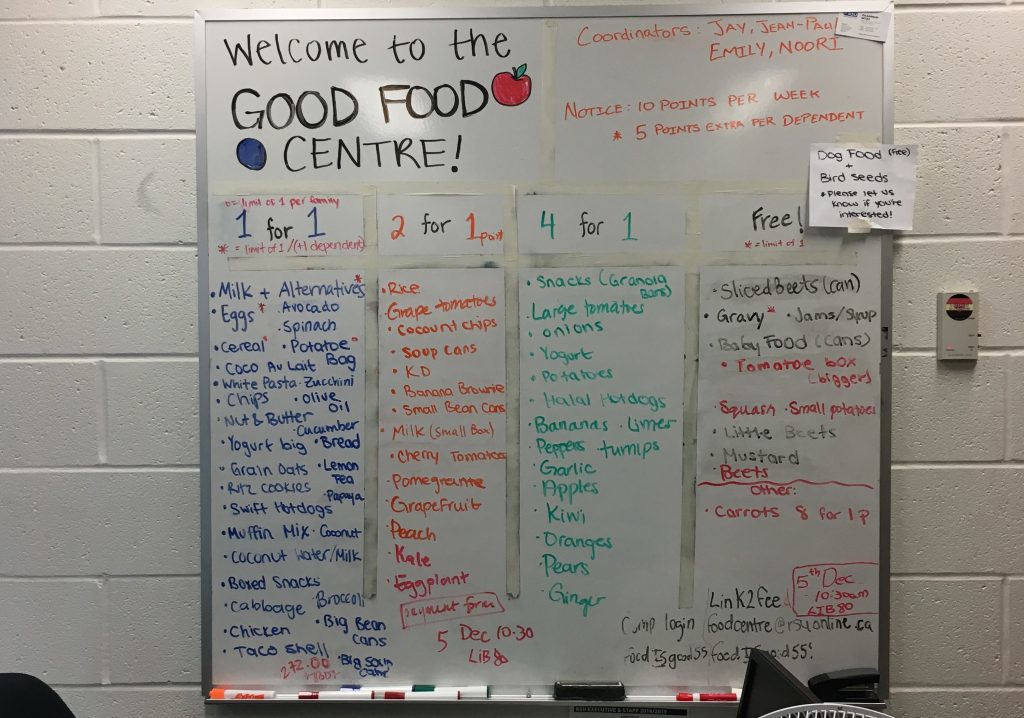 Welcome to the
GOOD FOOD
CENTRE!
Coordinators: JAY, JEAN-PAUL
EMILY, NOORI
NOTICE: 10 POINTS PER WEEK
* 5 POINTS EXTRA PER DEPENDENT
Dog Food (Free)
+
Bird seeds
*Please let us
know if you're
interested!
o = limit of 1 per family
1 for 1
* = limit of 1 /(+1 dependent)
• Milk + Alternatives*
• Eggs* • Avocado
• Spinach
• Cereal • Potatoe
Bag
• Coco Au Lait
• White Pasta • Zucchini
• Chips • olive
Oil
• Nut & Butter
• Cucumber
• Yogurt big • Bread
• Grain oats • Lemon
Tea
• Ritz cookies • Papaya
• Swift Hotdogs
• Muffin Mix • Coconut
• Coconut Water/Milk
• Boxed Snacks
• Cabbage • Broccoli
• Chicken • Big Bean
Cans
• Taco shell
• Big Soup
272.00
2 for 1 point
• Rice
• Grape tomatoes
• Cocount chips
• Soup cans
• K.D
• Banana Brownie
• Small Bean Cans
• Milk (Small Box)
• Cherry Tomatoes
• Pomegrante
• Grapefruit
• Peach
• Kale
• Eggplant
payment form
5 Dec 10:30
LIB 80
4 for 1
• Snacks (Granola
Bars)
• Large tomatoes
• onions
• Yogurt
• Potatoes
• Halal Hotdogs
• Bananas • Limes
• Peppers • turnips
• Garlic
• Apples
• Kiwi
• Oranges
• Pears
• Ginger
Free!
* = limit of 1
• Sliced Beets (can)
• Gravy* • Jams/Syrup
• Baby Food (cans)
• Tomatoe box
(bigger)
• Squash • Small potatoes
• Little Beets
• Mustard
• Beets
Other:
• Carrots 8 for 1 p
5th Dec
10:30am
LIB 80
Link2fee
Comp login /foodcentre@rsuonline.ca
foodISgood55 /foodISgood55!
RSU EXECUTIVE & STAFF 2018/2019